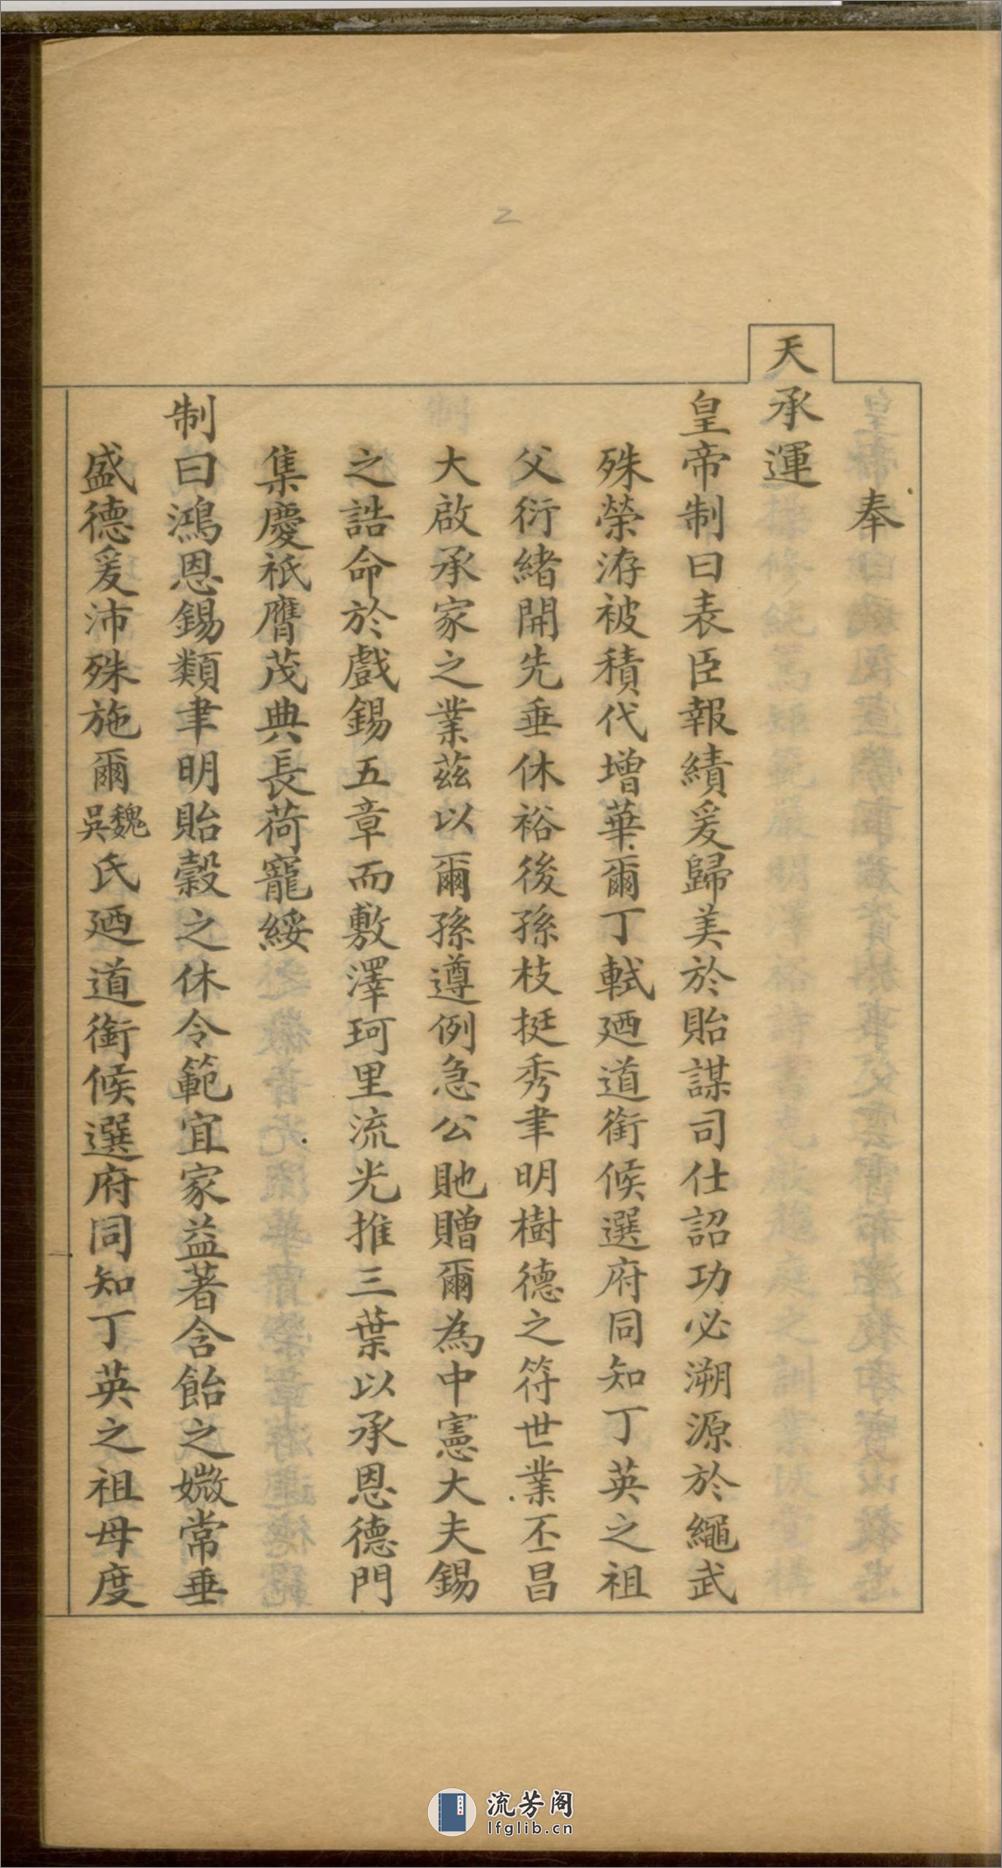 2
奉
天承運
皇帝制曰表臣報績爰歸美於貽謀司仕詔功必溯源於繩武
殊榮洊被積代增華爾丁軾廼道銜候選府同知丁英之祖
父衍緒開先垂休裕後孫枝挺秀聿明樹德之符世業丕昌
大啟承家之業茲以爾孫遵例急公貤贈爾為中憲大夫錫
之誥命於戲錫五章而敷澤珂里流光推三葉以承恩德門
集慶祇膺茂典長荷寵綏
制曰鴻恩錫類聿明貽穀之休令範宜家益著含飴之媺常垂
盛德爰沛殊施爾魏吳氏廼道銜候選府同知丁英之祖母度
流芳阁
lfglib.cn